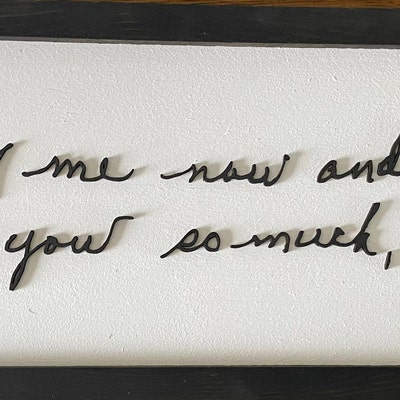 me now and
you so much,